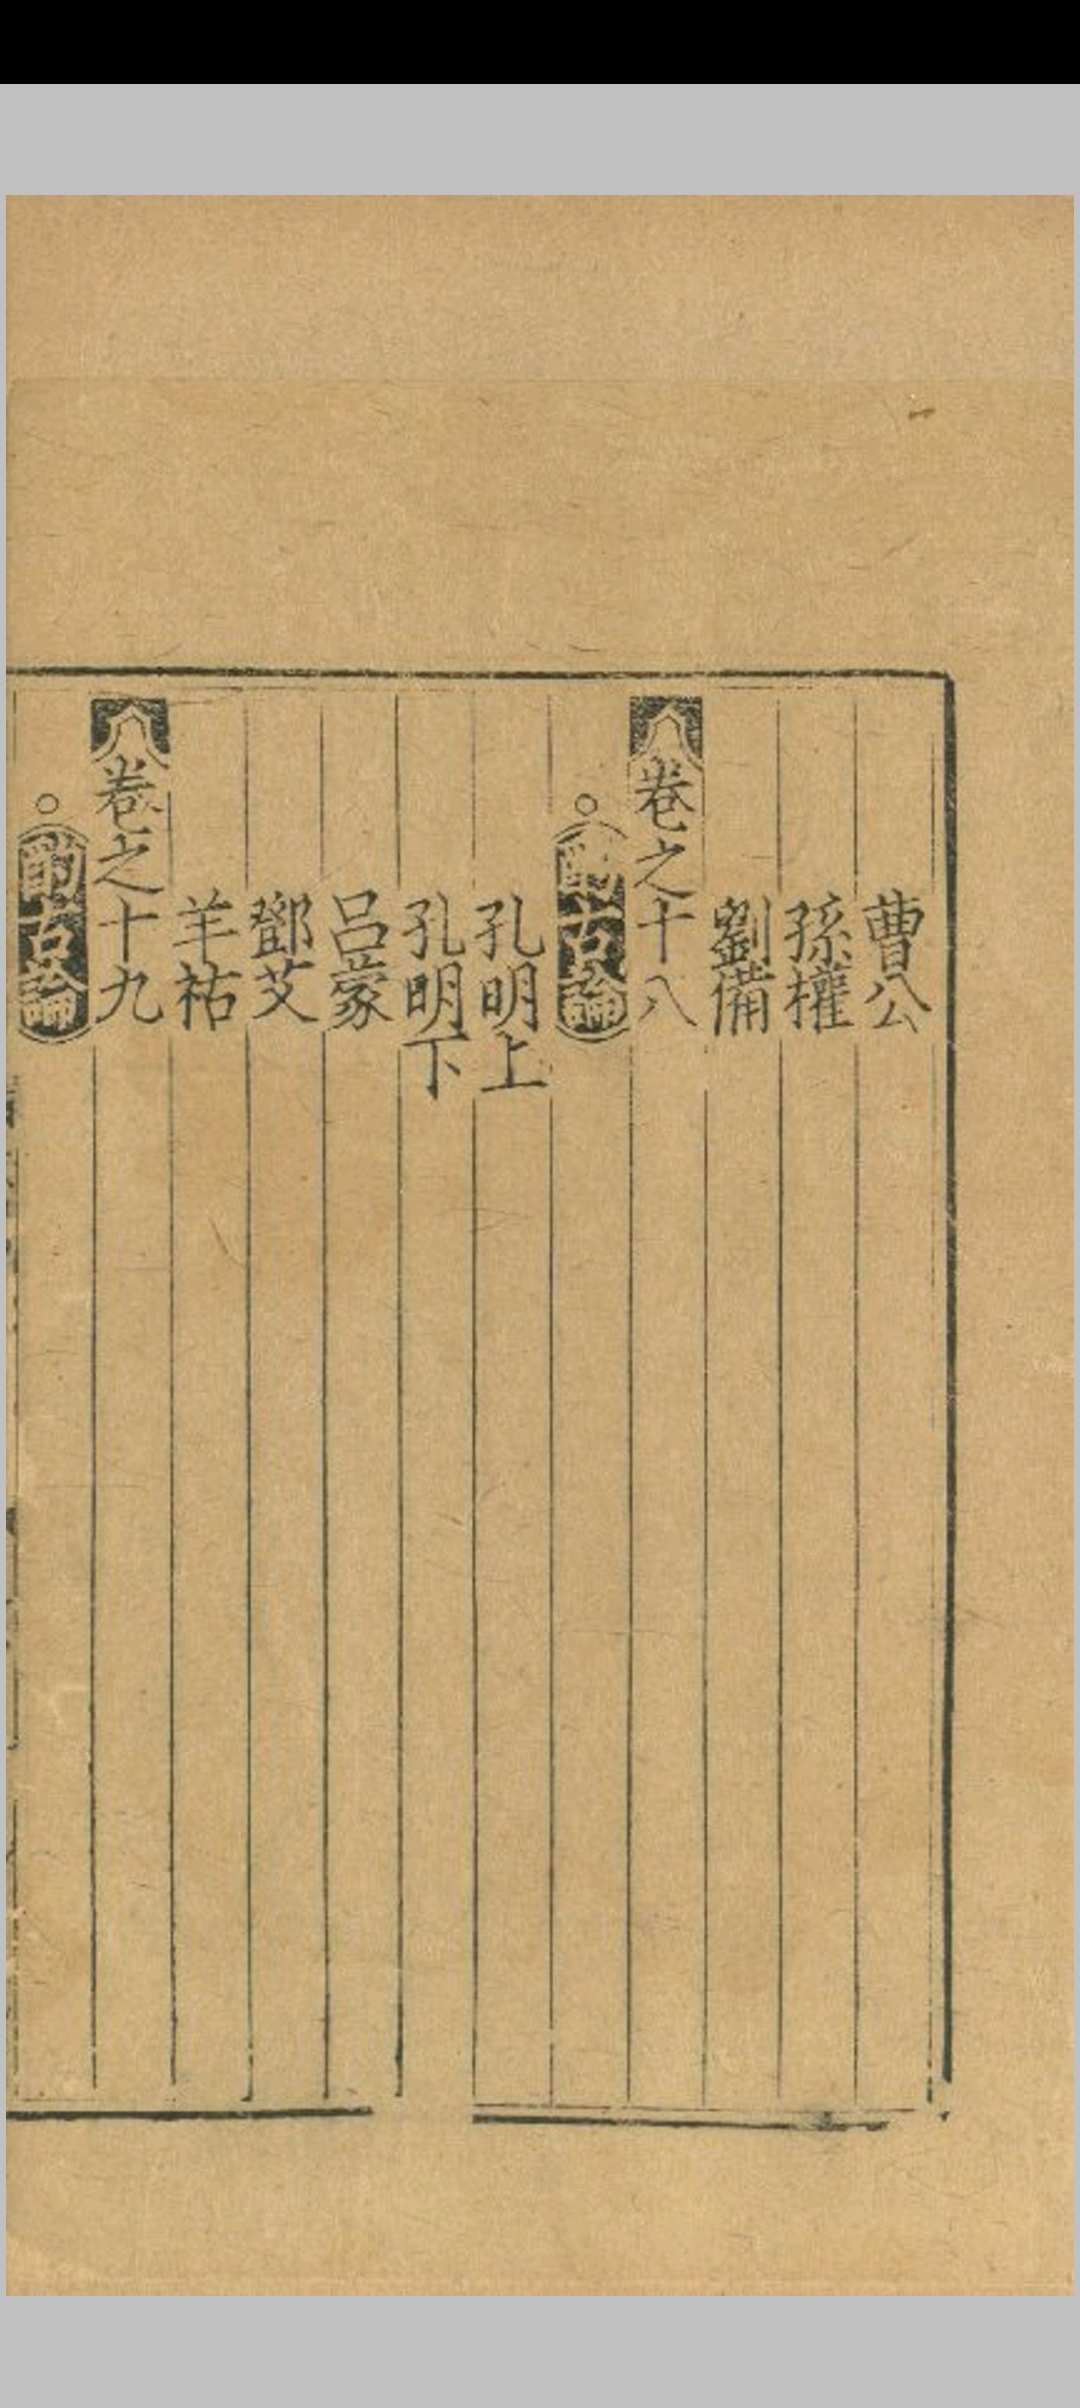 曹公
孫權
劉備
卷之十八
古論
孔明上
孔明下
呂蒙
鄧艾
羊祜
卷之十九
古論